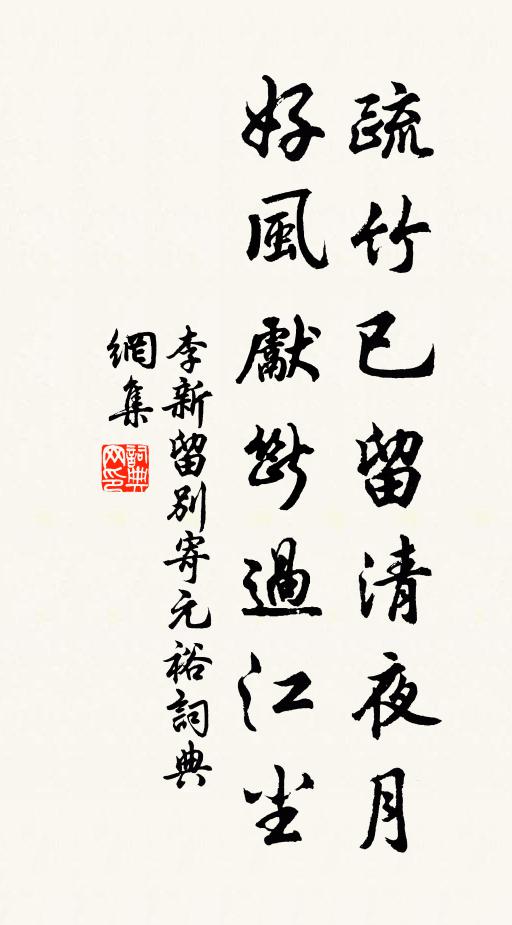 疏竹已留清夜月
好風獻斷過江尘
李新留別寄元裕詞典
網集
詞典网印